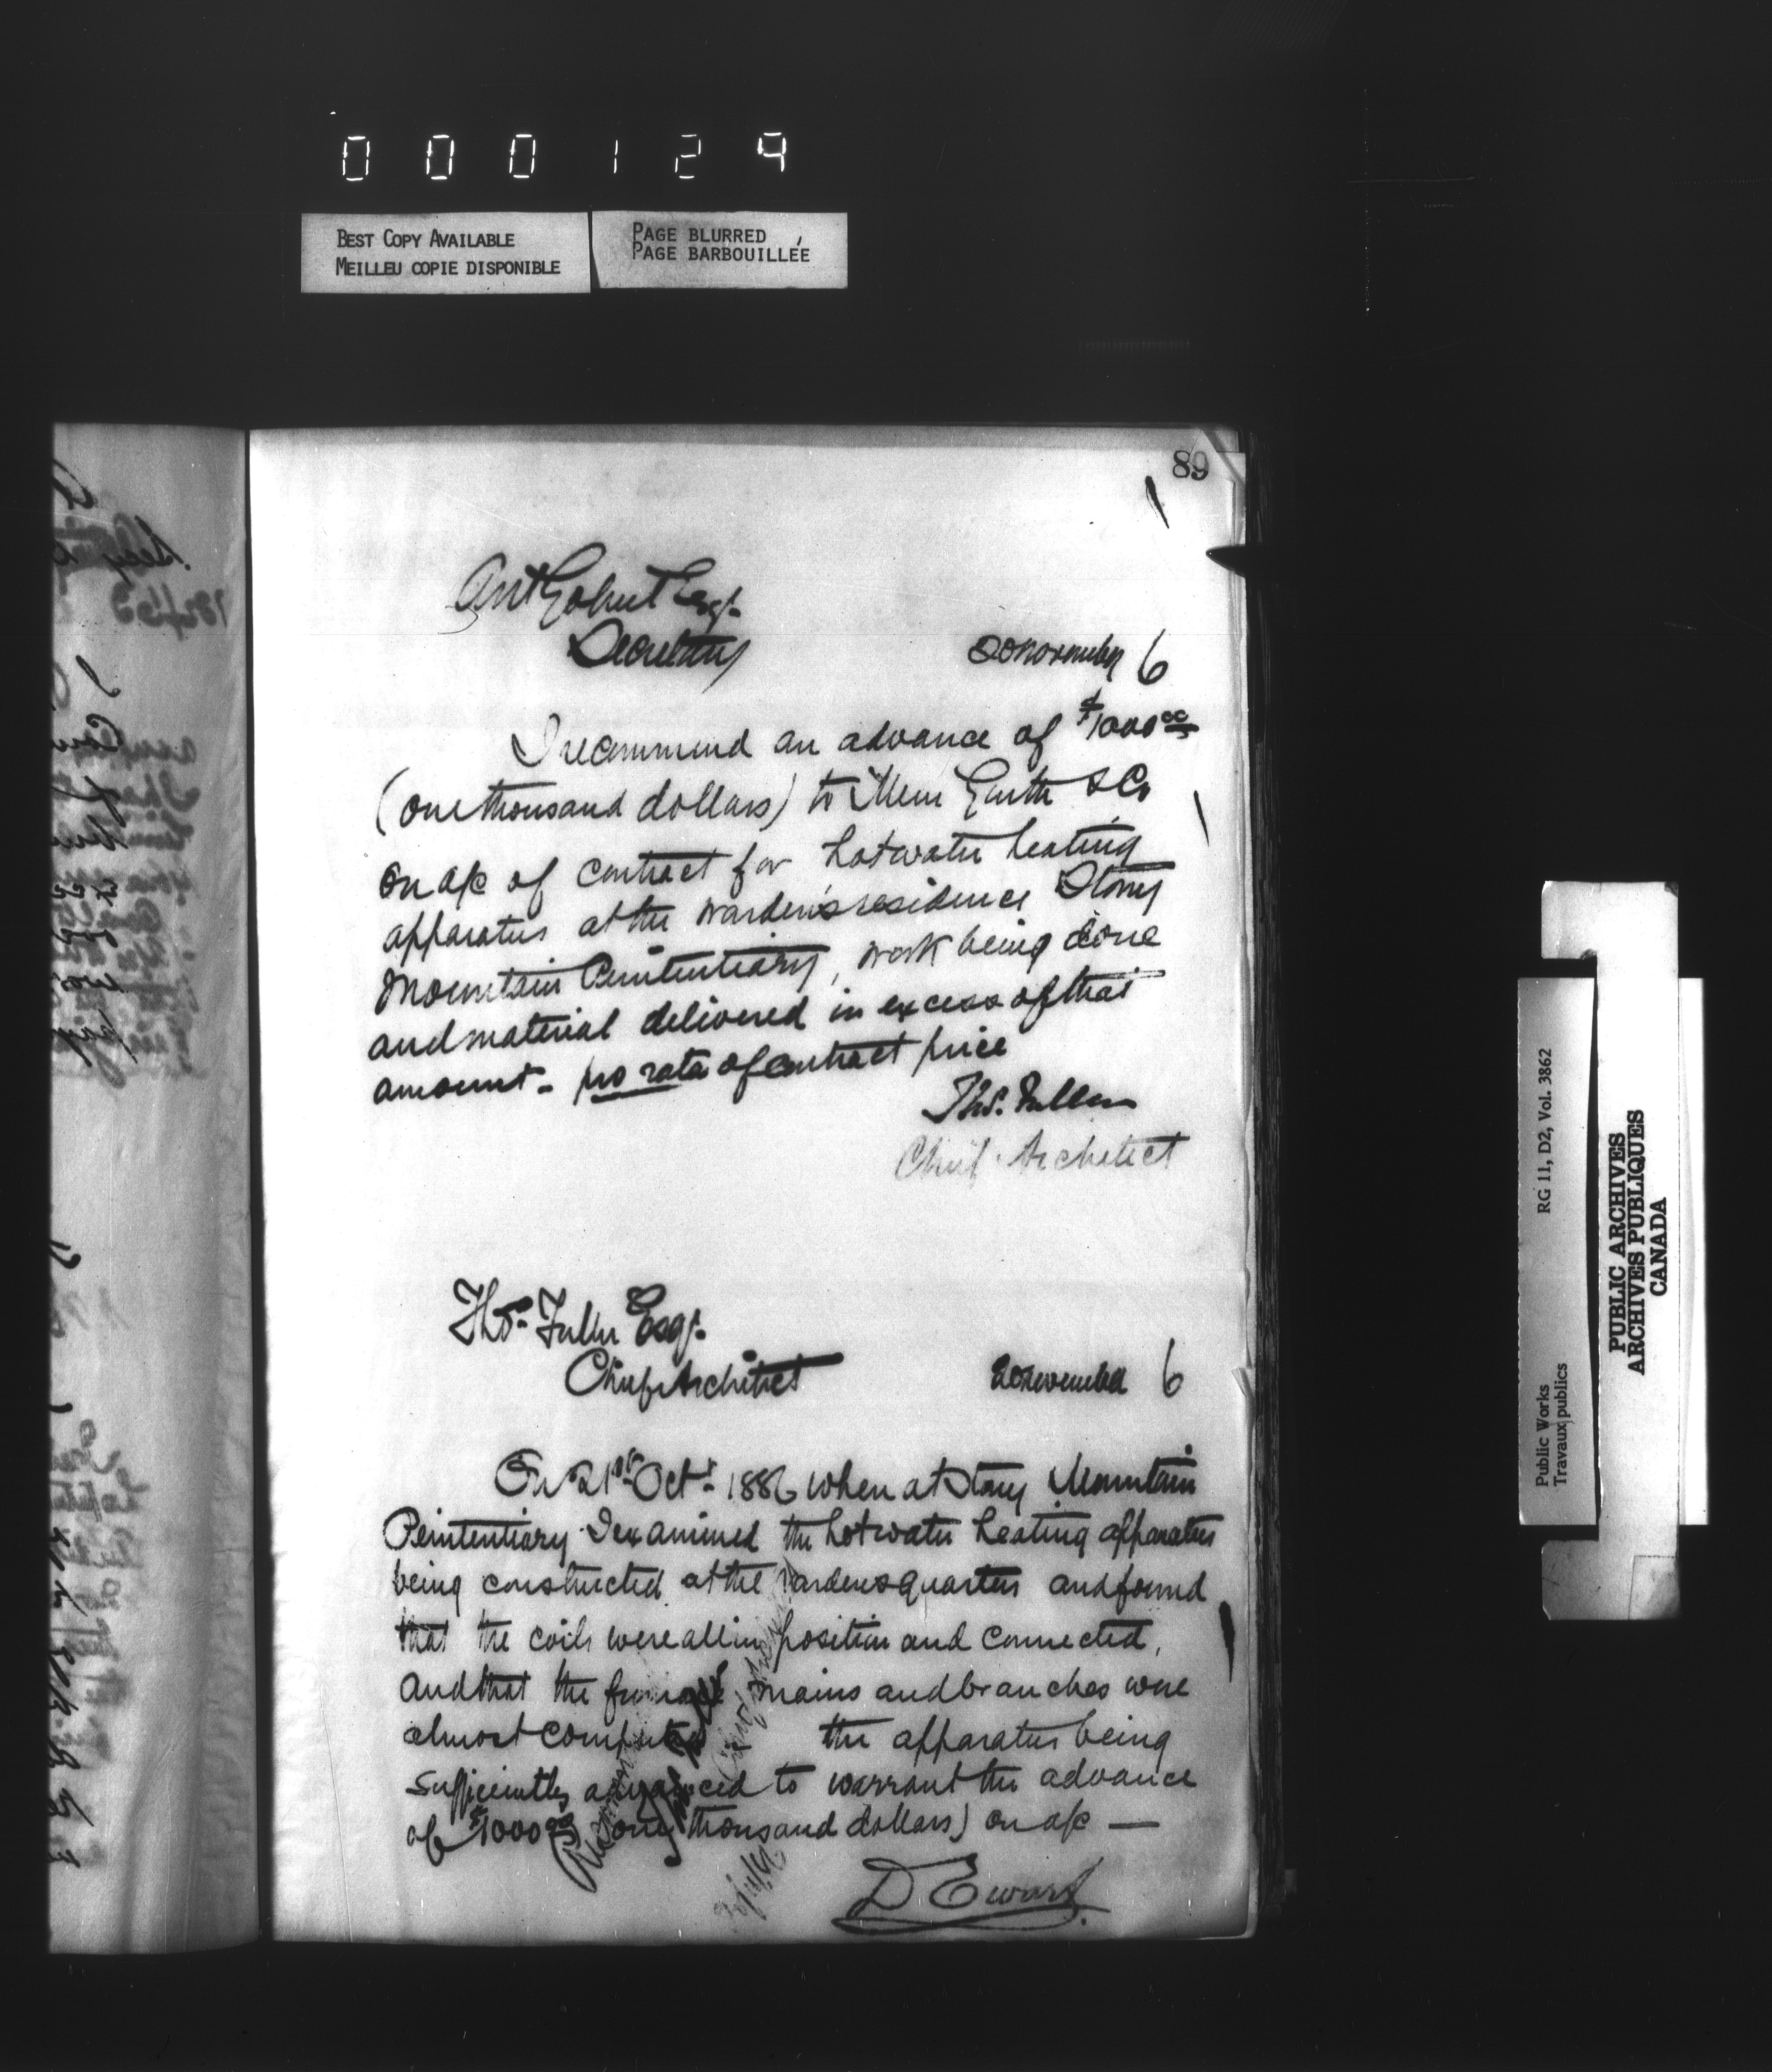 000129
BEST COPY AVAILABLE
MEILLEU COPIE DISPONIBLE
PAGE BLURRED
PAGE BARBOUILLÉE
89
Ant Gobeil Esqr.
Secretary
20 November 6
I recommend an advance of $1000 00
(one thousand dollars) to Mess Garth & Co
on a/c of contract for hotwater heating
apparatus at the warden's residence Stony
Mountain Penitentiary, work being done
and material delivered in excess of that
amount - pro rata of contract price
Thos. Fuller
Chief Architect
Thos. Fuller Esqr.
Chief Architect
20 November 6
On 21st Octr. 1886 when at Stony Mountain
Penitentiary I examined the hotwater heating apparatus
being constructed at the wardens quarters and found
that the coils were all in position and connected,
and that the furnace, mains and branches were
almost completed - the apparatus being
sufficiently advanced to warrant the advance
of $1000 00 (one thousand dollars) on a/c —
D Ewart
Public Works RG 11, D2, Vol. 3862
Travaux publics
PUBLIC ARCHIVES
ARCHIVES PUBLIQUES
CANADA